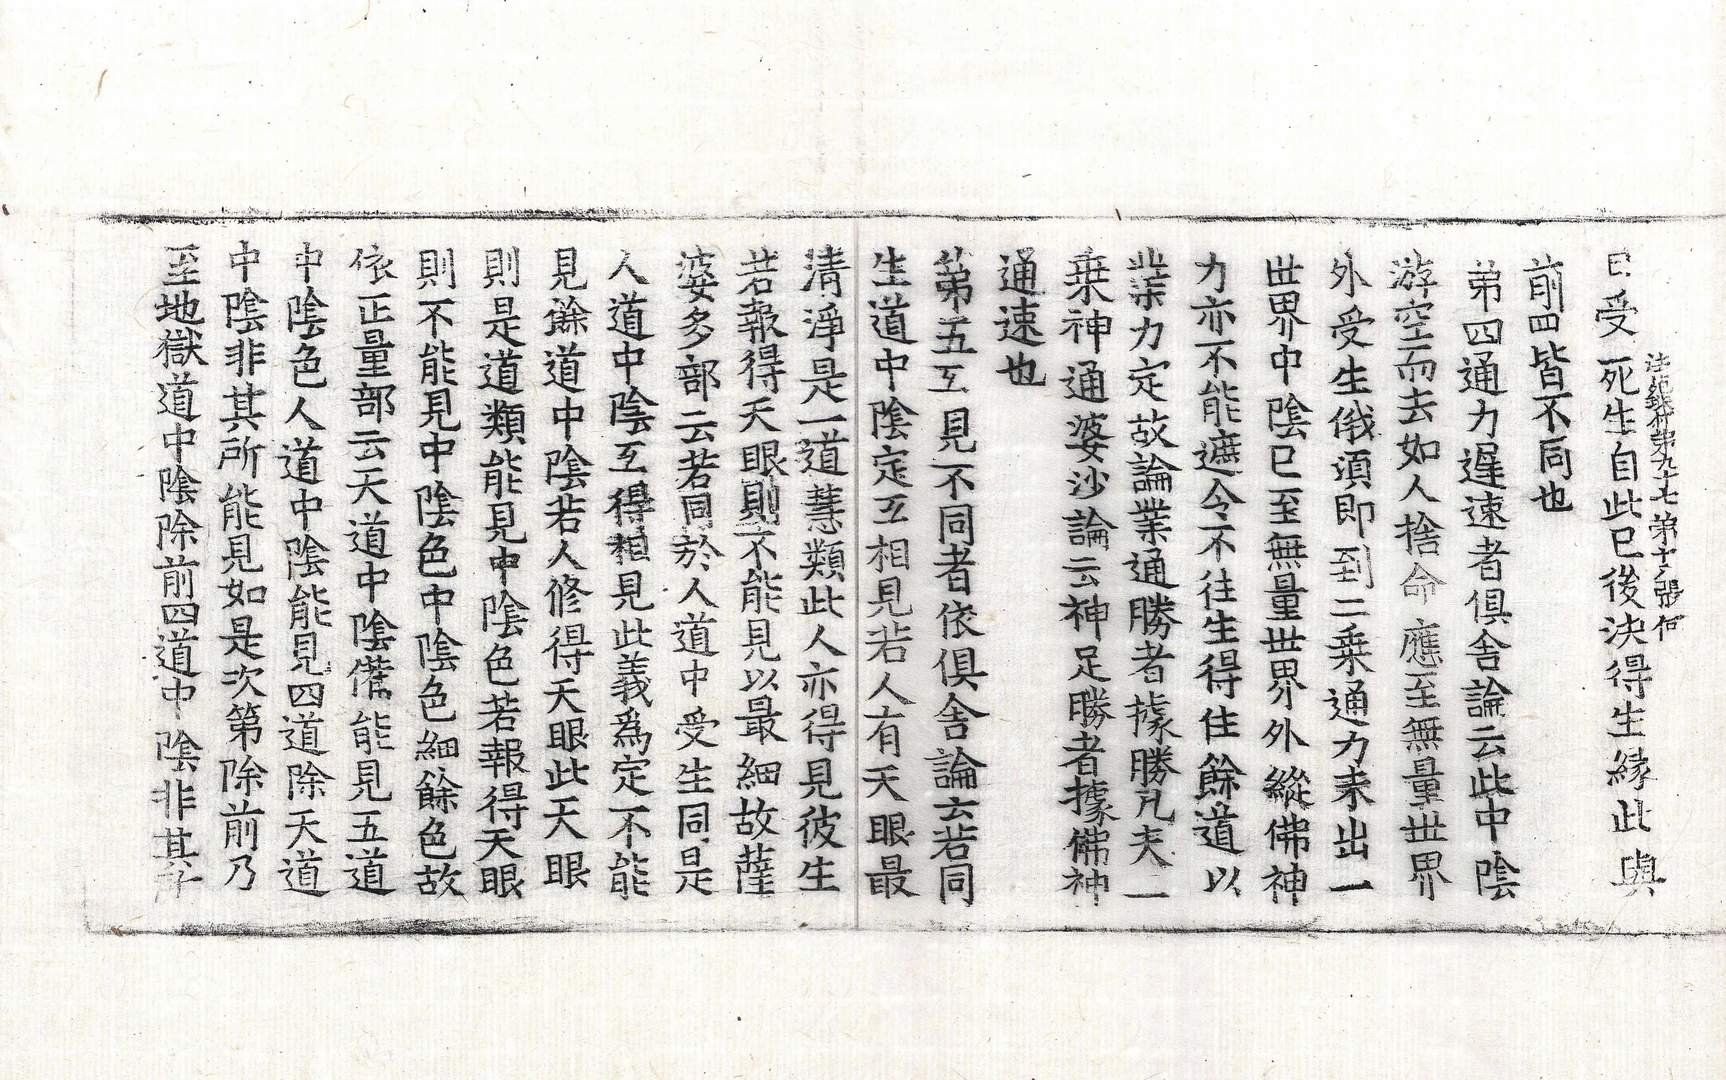 日受死生自此已後決得生緣此與
法苑珠林第九十七 第十張 何
前四皆不同也
第四通力遲速者俱舍論云此中陰
游空而去如人捨命應至無量世界
外受生俄湏即到二乗通力未出一
世界中陰已至無量世界外縱佛神
力亦不能遮令不往生得住餘道以
業力定故論業通勝者據勝凡夫一
乗神通婆沙論云神足勝者據佛神
通速也
第五互見不同者依俱舍論云若同
生道中陰定互相見若人有天眼最
清淨是一道慧類此人亦得見彼生
若報得天眼則不能見以最細故薩
婆多部云若同於人道中受生同是
人道中陰互得相見此義爲定不能
見餘道中陰若人修得天眼此天眼
則是道類能見中陰色若報得天眼
則不能見中陰色中陰色細餘色故
依正量部云天道中陰備能見五道
中陰色人道中陰能見四道除天道
中陰非其所能見如是次第除前乃
至地獄道中陰除前四道中陰非其